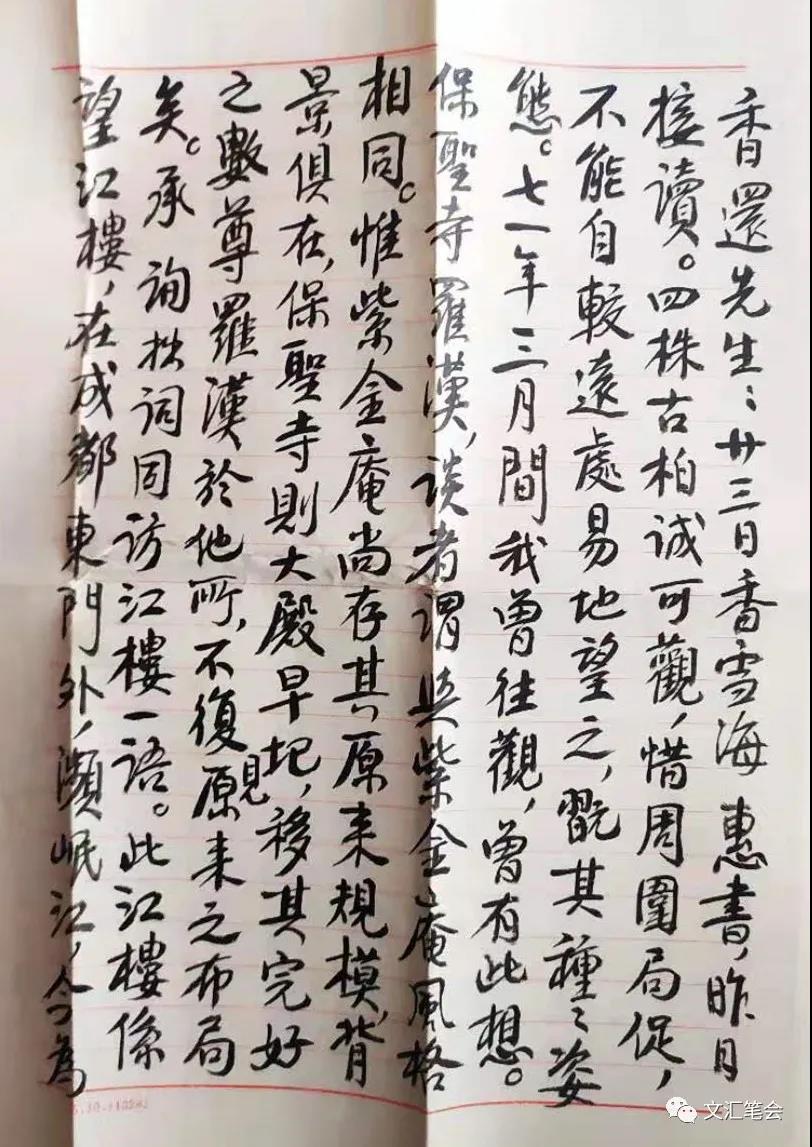 香還先生：廿三日香雪海 惠書，昨日
接讀。四株古柏誠可觀，惜周圍局促，
不能自較遠處易地望之，翫其種〻姿
態。七一年三月間我曾往觀，曾有此想。
保聖寺羅漢，談者謂與紫金庵風格
相同。惟紫金庵尚存其原來規模，背
景俱在，保聖寺則大殿早圮，移其完好
之數尊羅漢於他所，不復見原來之布局
矣。承 詢拙詞同訪江樓一語。此江樓係
望江樓，在成都東門外，瀕岷江，今為
文汇笔会